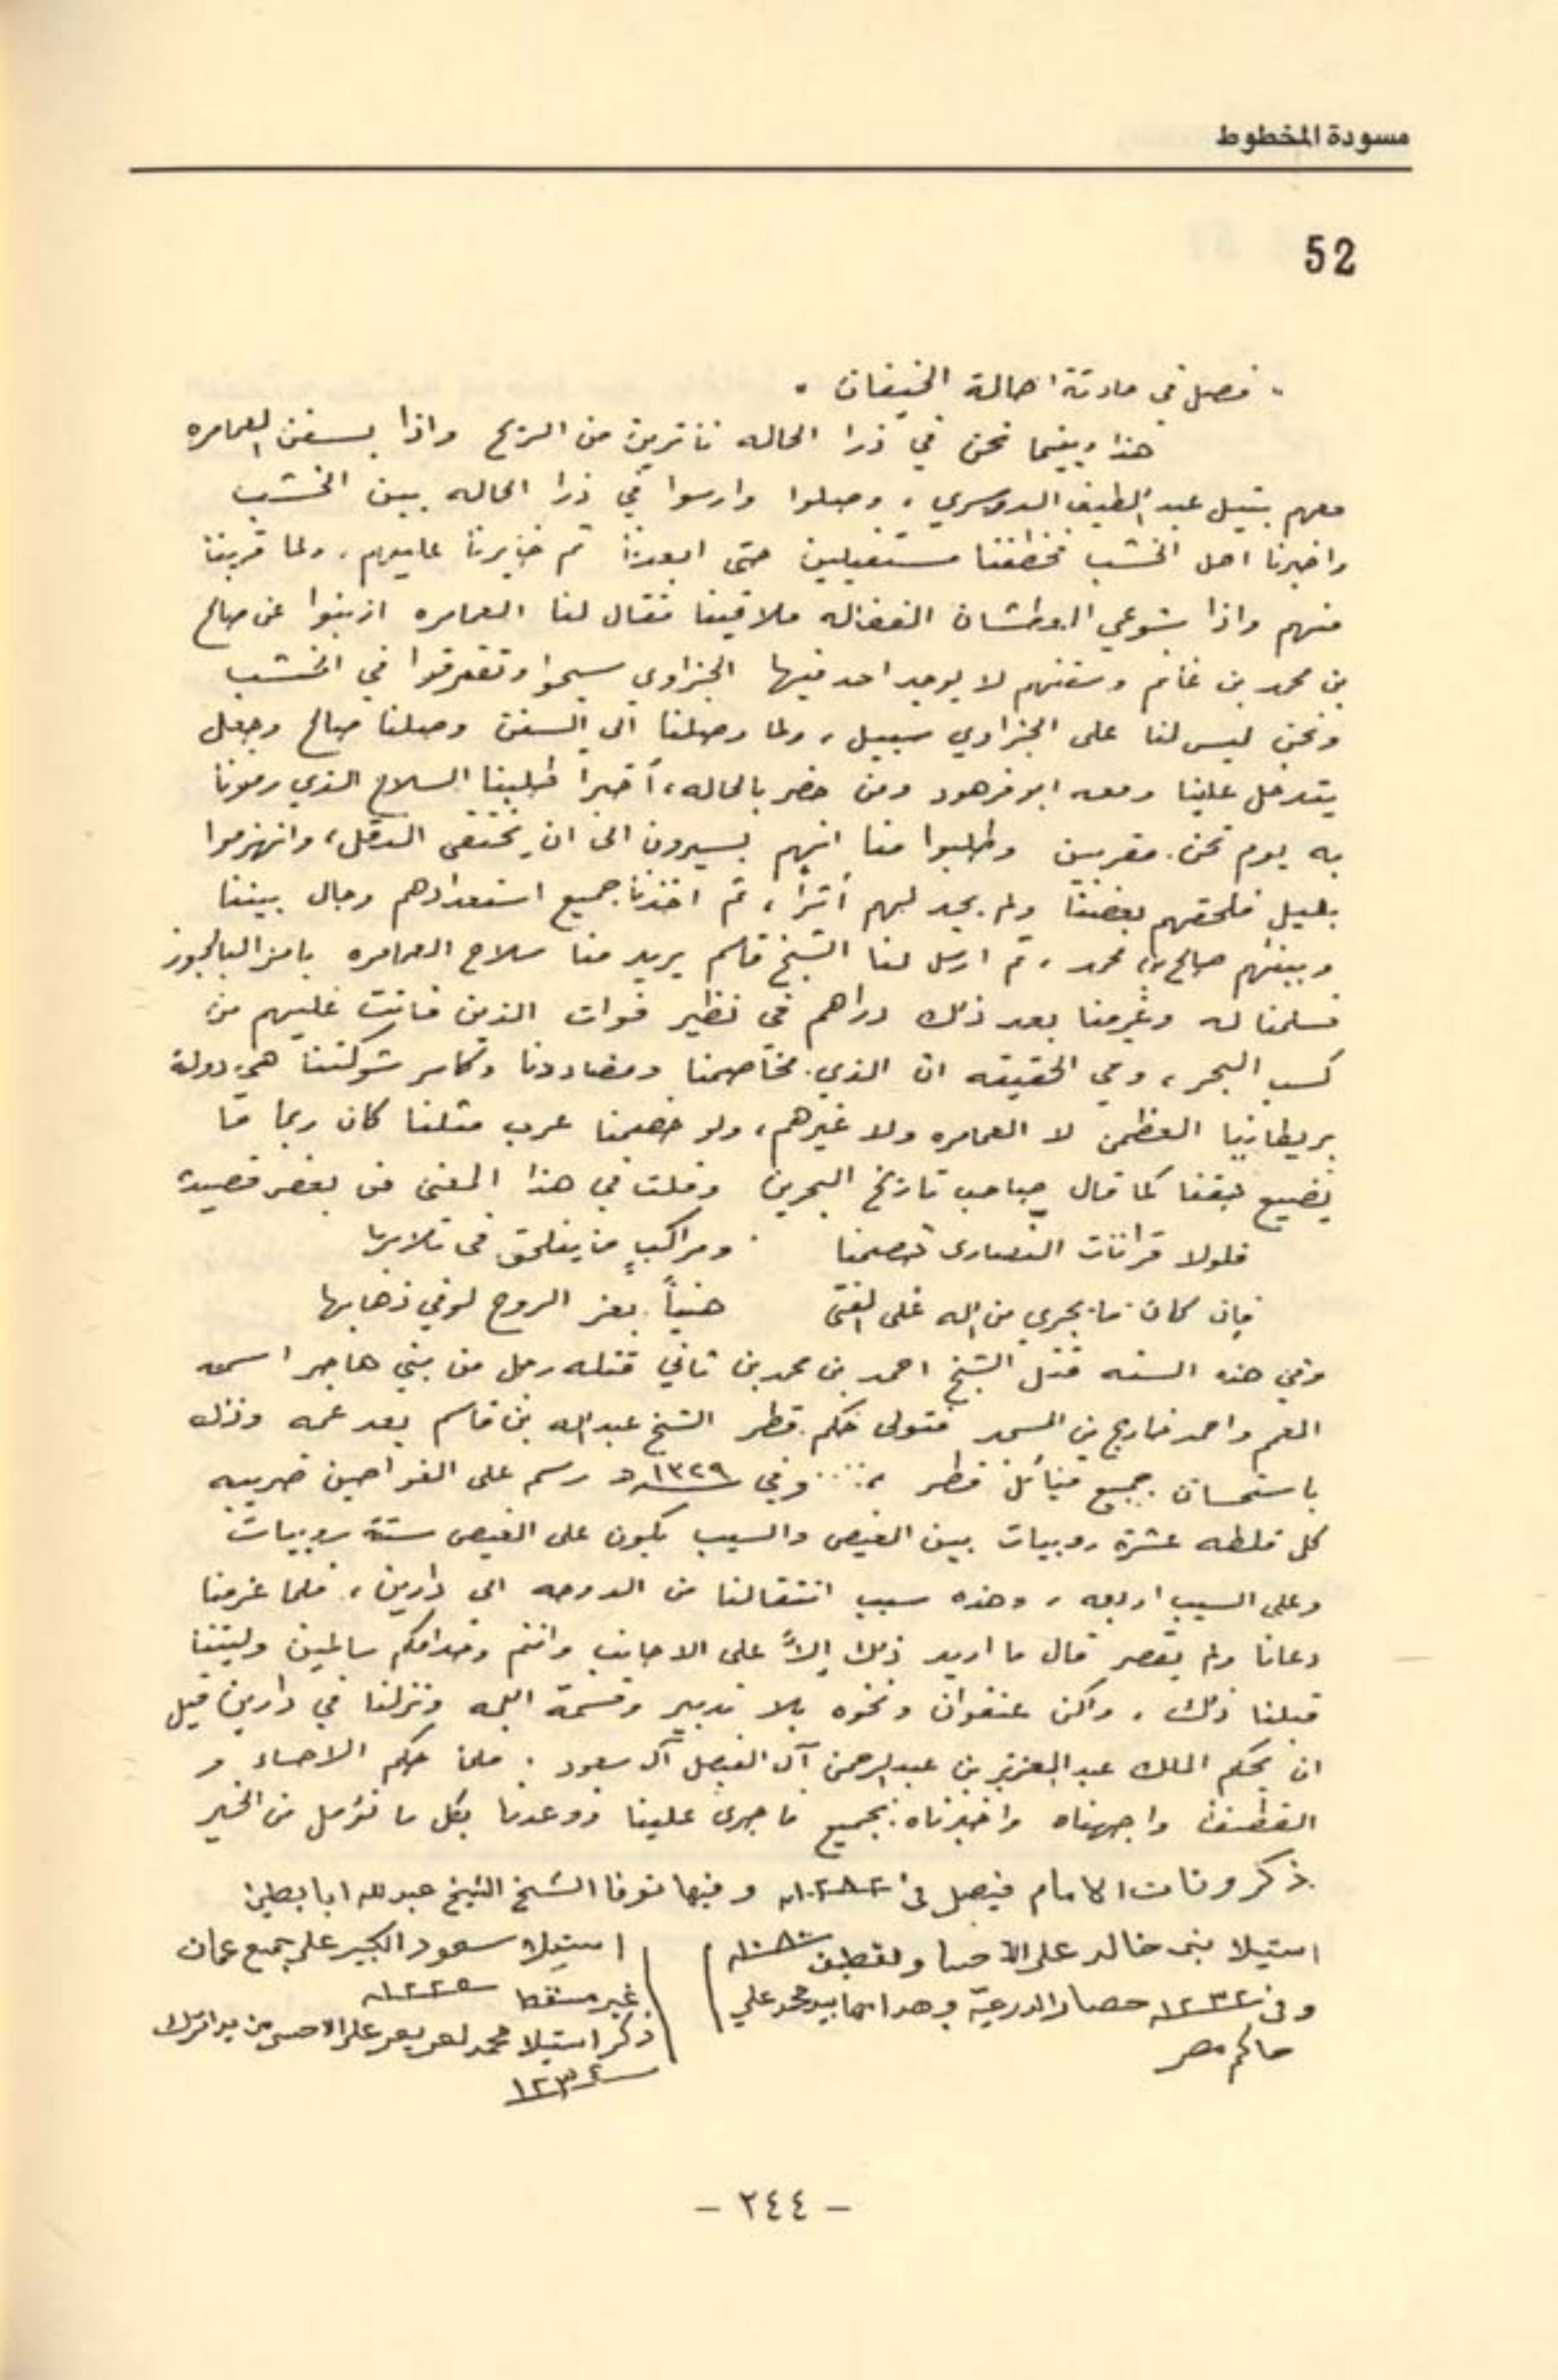 مسودة المخطوط
52
فصل في حادثة احالة الخيفان
هذا وبينما نحن في ذرا الحاله من الريح واذا بسفن العمامره
معهم بتيل عبد اللطيف الدوسري، وصلوا وارسوا في ذرا الحاله بين الخشب
واخبرنا اهل الخشب مستقبلين حتى ابعدنا ثم خايرنا عليهم، ولما قربنا
منهم واذا بشوعي البوطشان الفضاله ملاقينا فقال لنا العمامره ازبنوا عن صالح
بن محمد بن غانم وسفنهم لا يوجد احد فيها الجزاوي سيحوا وتفرقوا في الخشب
ونحن ليس لنا على الجزاوي سبيل، ولما وصلنا الى السفن وصلنا صالح وجعل
يتدخل علينا ومعه ابو فرهود ومن حضر بالحاله، أخيراً طلبنا السلاح الذي رمونا
به يوم نحن مقربين وطلبوا منا انهم يسيرون الى ان يختفى الدقل، وانهزموا
بليل فلحقهم بعضنا ولم يجد لهم أثراً، ثم اخذنا جميع استعدادهم وحال بيننا
وبينهم صالح بن محمد، ثم ارسل لنا الشيخ قاسم يريد منا سلاح العمامره
فسلمنا له وغرمنا بعد ذلك دراهم في نظير فوات الذين فاتت عليهم من
كسب البحر، وفي الحقيقه ان الذي مخاصمنا ومضاددنا وكاسر شوكتنا هي دولة
بريطانيا العظمى لا العمامره ولا غيرهم، ولو خصيمنا عرب مثلنا كان ربما ما
يضيع حقنا كما قال صاحب تاريخ البحرين وقلت في هذا المعنى من بعض قصيدة
فلولا النصارى تصمنا ومراكب من يفلحق في تلابها
فإن كان ما يجري من الله على الفتى هنيأً بعز الروح لوفي ذهابها
وفي هذه السنه قتل الشيخ احمد بن محمد بن ثاني قتله رجل من بني هاجر اسمه
المعم واحمد خارج من المسجد فتولى حكم قطر الشيخ عبدالله بن قاسم بعد عمه وذلك
باستحسان جميع قبائل قطر، وفي ١٣٢٩هـ رسم على الغواصين ضريبه
كل قلطه عشرة روبيات بين الغيص والسيب يكون على الغيص ستة روبيات
وعلى السيب اربعه، وهذه سبب انتقالنا من الدوحه الى دارين، فلما عزمنا
دعانا ولم يقصر قال ما اريد ذلك إلاً على الاجانب وانتم وخدامكم سالمين وليتنا
قبلنا ذلك، ولكن عنفوان ونخوه بلا تدبير وقسمة الله ونزلنا في دارين قبل
ان يحكم الملك عبد العزيز بن عبدالرحمن آل الفيصل آل سعود. فلما حكم الاحساء و
القطيف واجهناه واخبرناه بجميع ما جرى علينا ووعدنا بكل ما نؤمل من الخير
ذكر وفات الامام فيصل في ١٢٨٢هـ وفيها توفا الشيخ الشيخ عبدالله ابا بطين
استيلا بني خالد على الاحسا والقطيف ١٠٨٠هـ
وفي ١٢٣٢هـ حصار الدرعية وهدامها بيد محمد علي
حاكم مصر
استيلاء سعود الكبير على جميع عمان
غير مسقط ١٢٢٥هـ
ذكر استيلا محمد لعريعر على الاحسى من يد الترك
١٢٣٤
- ٢٤٤ -